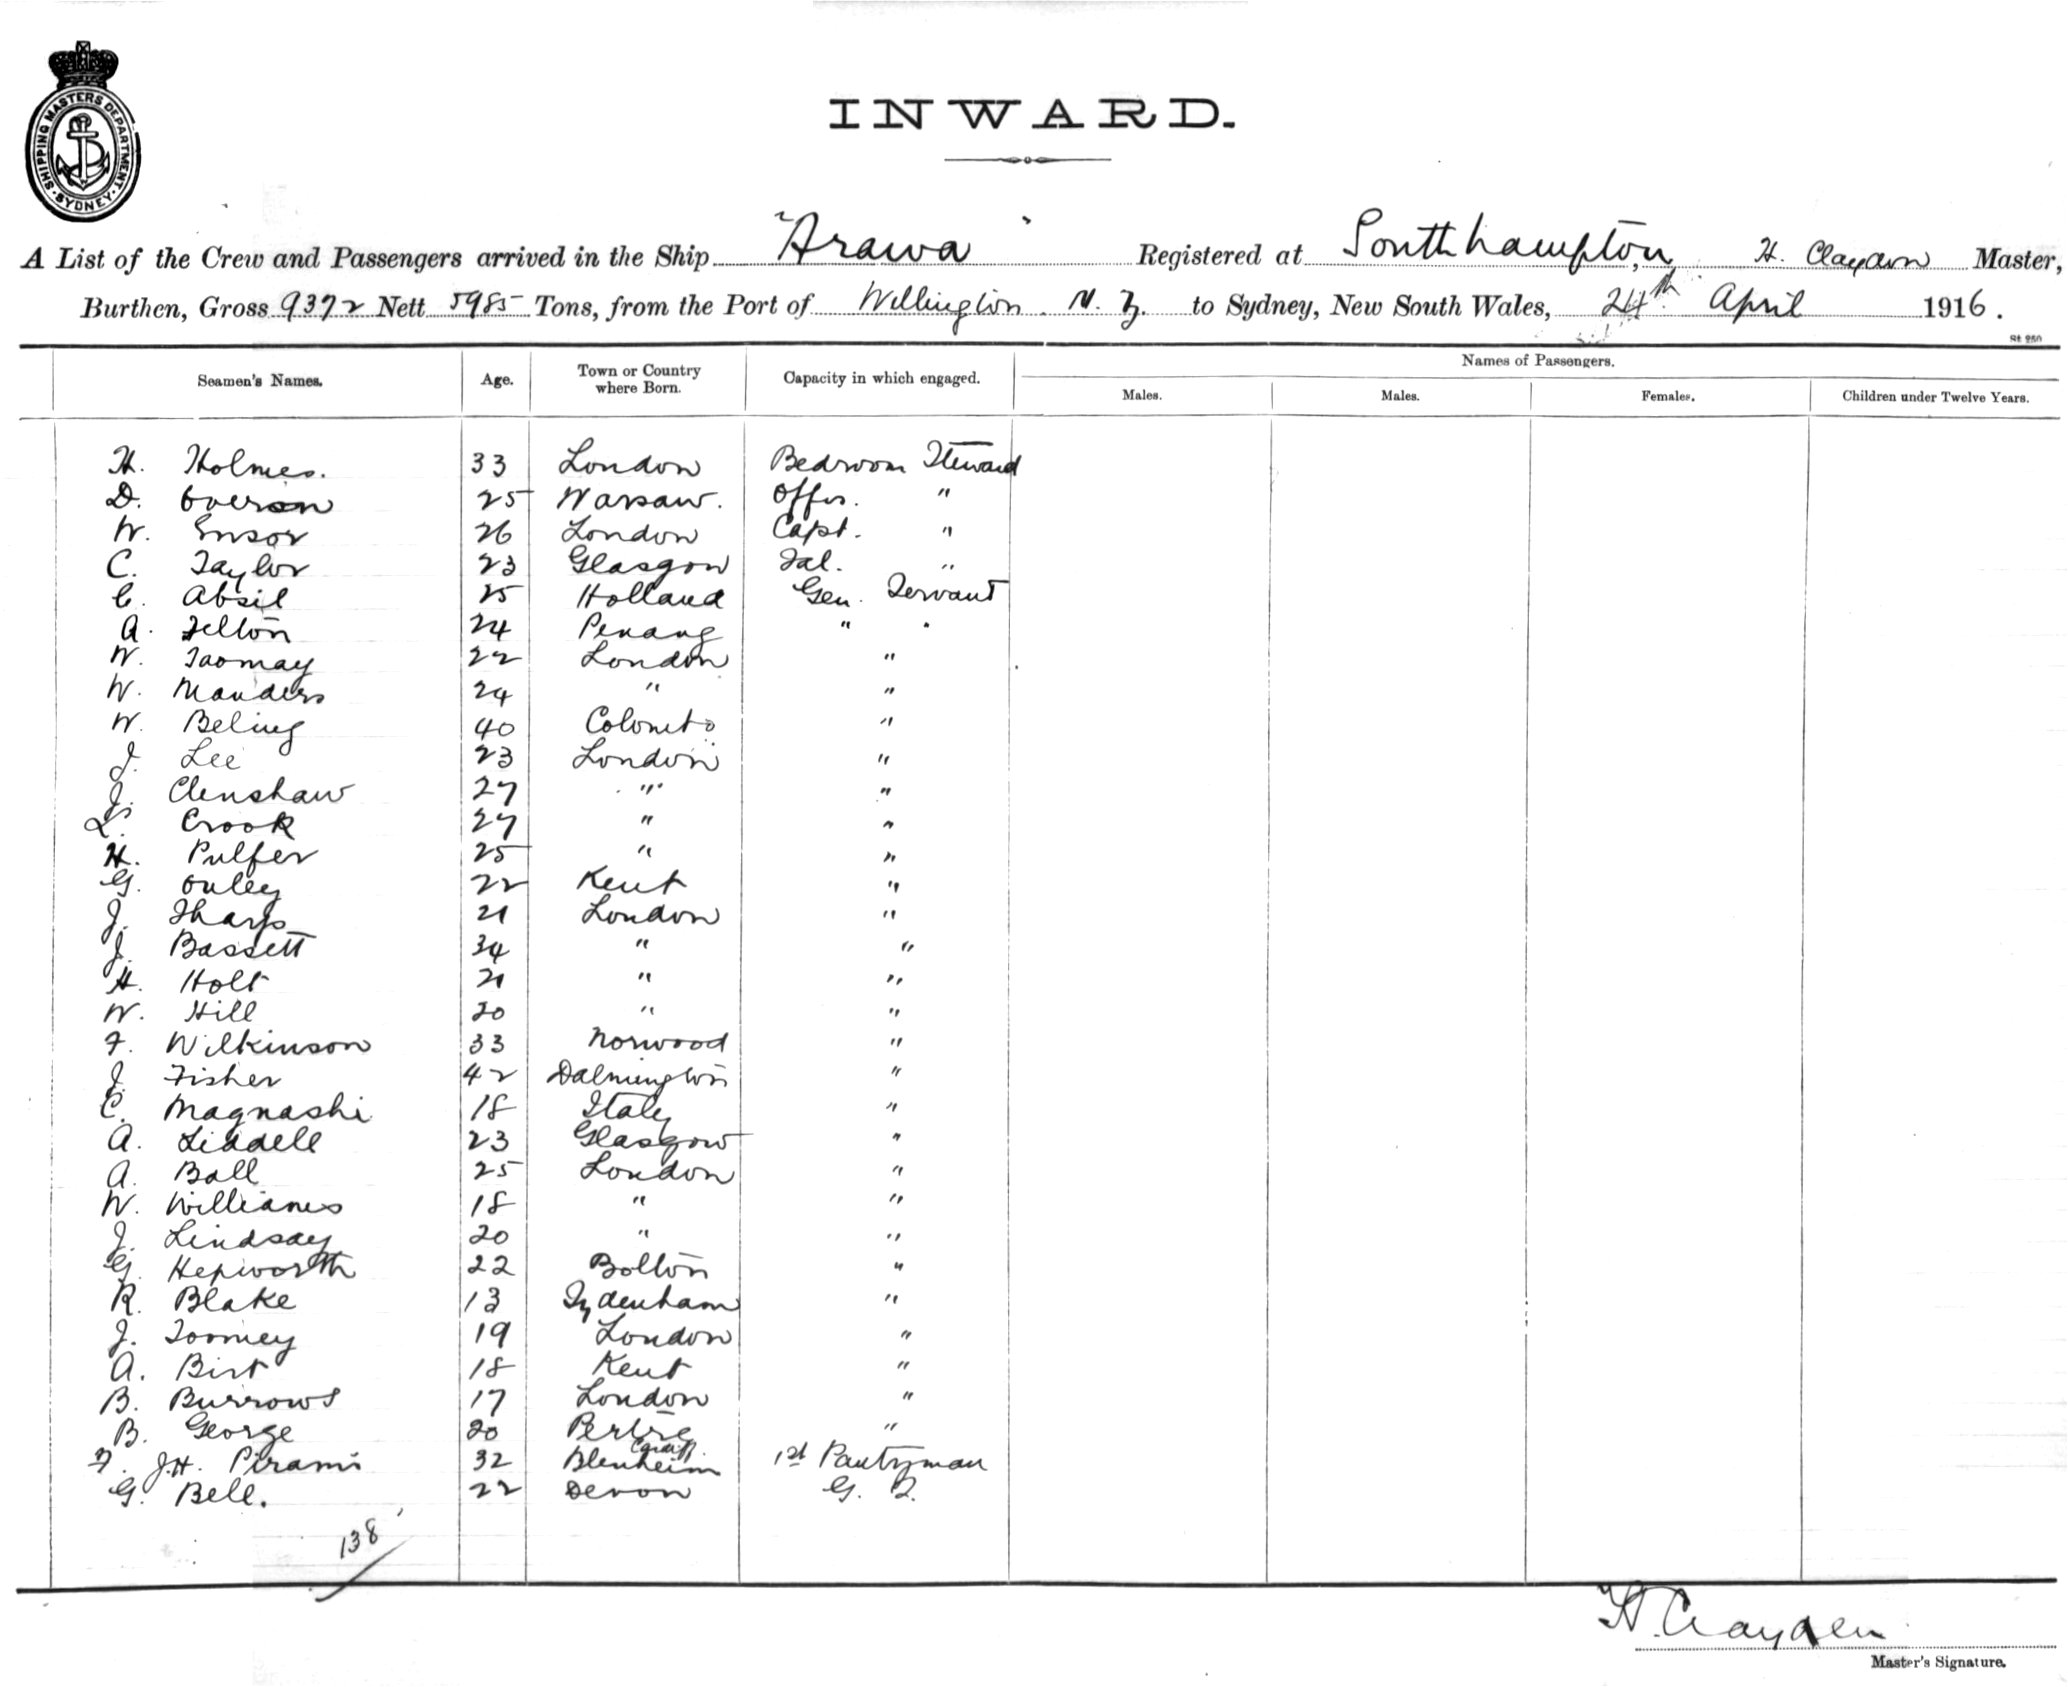 SHIPPING MASTERS DEPARTMENT. SYDNEY.
INWARD.
A List of the Crew and Passengers arrived in the Ship "Arawa" Registered at Southhampton, H. Claydon Master,
Burthen, Gross 9372 Nett 5985 Tons, from the Port of Wellington N. Z. to Sydney, New South Wales, 24th April 1916.
St 950
Seamen's Names. Age. Town or Country where Born. Capacity in which engaged. Names of Passengers.
Males. Males. Females. Children under Twelve Years.
H. Holmes. 33 London Bedroom Steward
D. Overson 25 Warsaw. Offrs. "
W. Ensor 26 London Capt. "
C. Taylor 23 Glasgow Sal. "
C. Absil 25 Holland Gen. Servant
A. Felton 24 Penang " "
W. Toomay 22 London "
W. Manders 24 " "
W. Beling 40 Colombo "
J. Lee 23 London "
J. Clenshaw 27 " "
L. Crook 27 " "
H. Pulfer 25 " "
G. Onley 22 Kent "
J. Tharp 21 London "
J. Bassett 34 " "
H. Holt 21 " "
W. Hill 20 " "
F. Wilkinson 33 Norwood "
J. Fisher 42 Dalmington "
C. Magnashi 18 Italy "
A. Liddell 23 Glasgow "
A. Ball 25 London "
W. Williams 18 " "
J. Lindsay 20 " "
G. Hepworth 22 Bolton "
R. Blake 13 Sydenham "
J. Toomey 19 London "
A. Birt 18 Kent "
B. Burrows 17 London "
B. George 20 "
Cardiff.
F. J.H. Pirami 32 Blenheim 1st Pantryman
G. Bell. 22 Devon G. S.
138
H. Clayden
Master's Signature.